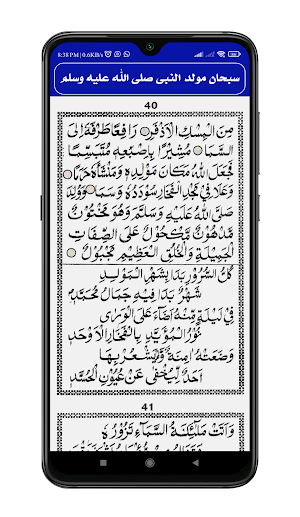 8:38 PM | 0.6KB/s
سبحان مولد النبی صلی الله علیه وسلم
40
مِنَ الْمِسْكِ الْاَذْفَرِ رَافِعًا طَرْفَهٗ اِلَى
السَّمَاءِ مُشِيْرًا بِاِصْبَعِهٖ مُتَبَسِّمًا
فَجَعَلَ اللّٰهُ مَكَانَ مَوْلِدِهٖ وَمَنْشَاَهٗ حَرَمًا
وَعَلَا فِيْ مَجْدِ الْفَخَارِ سُوْدَدُهٗ وَسَمَا وَوُلِدَ
صَلَّى اللّٰهُ عَلَيْهِ وَسَلَّمَ وَهُوَ مَخْتُوْنٌ
مَدْهُوْنٌ مَكْحُوْلٌ عَلَى الصِّفَاتِ
الْجَمِيْلَةِ وَالْخُلُقِ الْعَظِيْمِ مَجْبُوْلٌ
كُلُّ السُّرُوْرِ بَدَا بِشَهْرِ الْمَوْلِدِ
شَهْرٌ بَدَا فِيْهِ جَمَالُ مُحَمَّدٍ
فِيْ لَيْلَةٍ مِنْهُ اَضَاءَ عَلَى الْوَرٰى
نُوْرُ الْمُؤَيَّدِ بِالْفَخَارِ الْاَوْحَدِ
وَضَعَتْهُ اٰمِنَةٌ وَلَمْ يَشْعُرْ بِهَا
اَحَدٌ لِيُخْفٰى عَنْ عُيُوْنِ الْحُسَّدِ
41
وَاَتَتْ مَلَائِكَةُ السَّمَاءِ تَزُوْرُهٗ